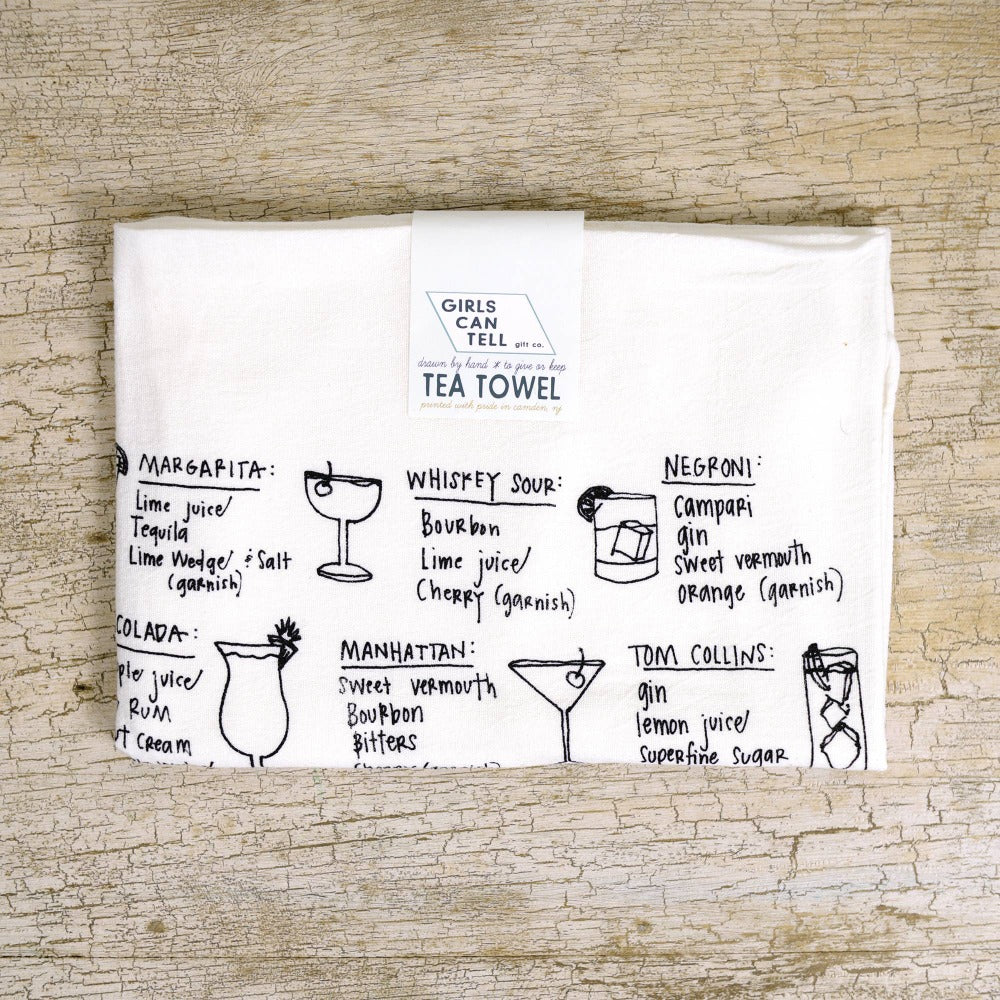 GIRLS
CAN
TELL gift co.
drawn by hand * to give or keep
TEA TOWEL
printed with pride in camden, nj
MARGARITA:
Lime juice
Tequila
Lime Wedge & Salt
(garnish)
WHISKEY SOUR:
Bourbon
Lime juice
Cherry (garnish)
NEGRONI:
Campari
gin
sweet vermouth
orange (garnish)
COLADA:
juice
Rum
Cream
MANHATTAN:
Sweet vermouth
Bourbon
Bitters
TOM COLLINS:
gin
lemon juice
Superfine Sugar